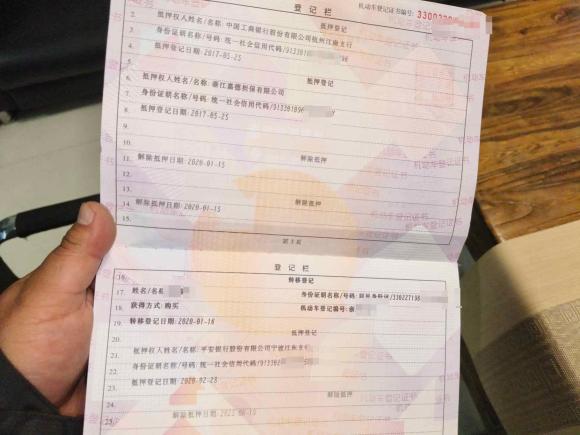 登记栏
机动车登记证书编号: 33002
2. 抵押登记
3. 抵押权人姓名/名称: 中国工商银行股份有限公司杭州江南支行
身份证明名称/号码: 统一社会信用代码/9133010
4. 抵押登记日期: 2017-05-25
5.
6. 抵押登记
7. 抵押权人姓名/名称: 浙江嘉德担保有限公司
身份证明名称/号码: 统一社会信用代码/91330109
8. 抵押登记日期: 2017-05-25
11. 解除抵押
解除抵押日期: 2020-01-15
14. 解除抵押
解除抵押日期: 2020-01-15
15.
第3页
登记栏
16. 转移登记
17. 姓名/名称
身份证明名称/号码: 居民身份证/330227198
18. 获得方式: 购买
机动车登记编号: 浙
19. 转移登记日期: 2020-01-16
抵押登记
21. 抵押权人姓名/名称: 平安银行股份有限公司宁波江东支行
22. 身份证明名称/号码: 统一社会信用代码/913302
23. 抵押登记日期: 2020-02-28
解除抵押
25. 解除抵押日期: